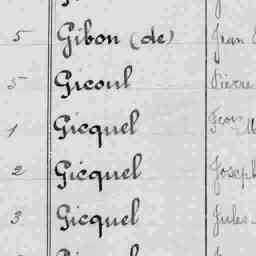 5 Gibon (de) Jean
5 Gicoul Pierre
1 Gicquel Fçois M
2 Gicquel Joseph
3 Gicquel Jules